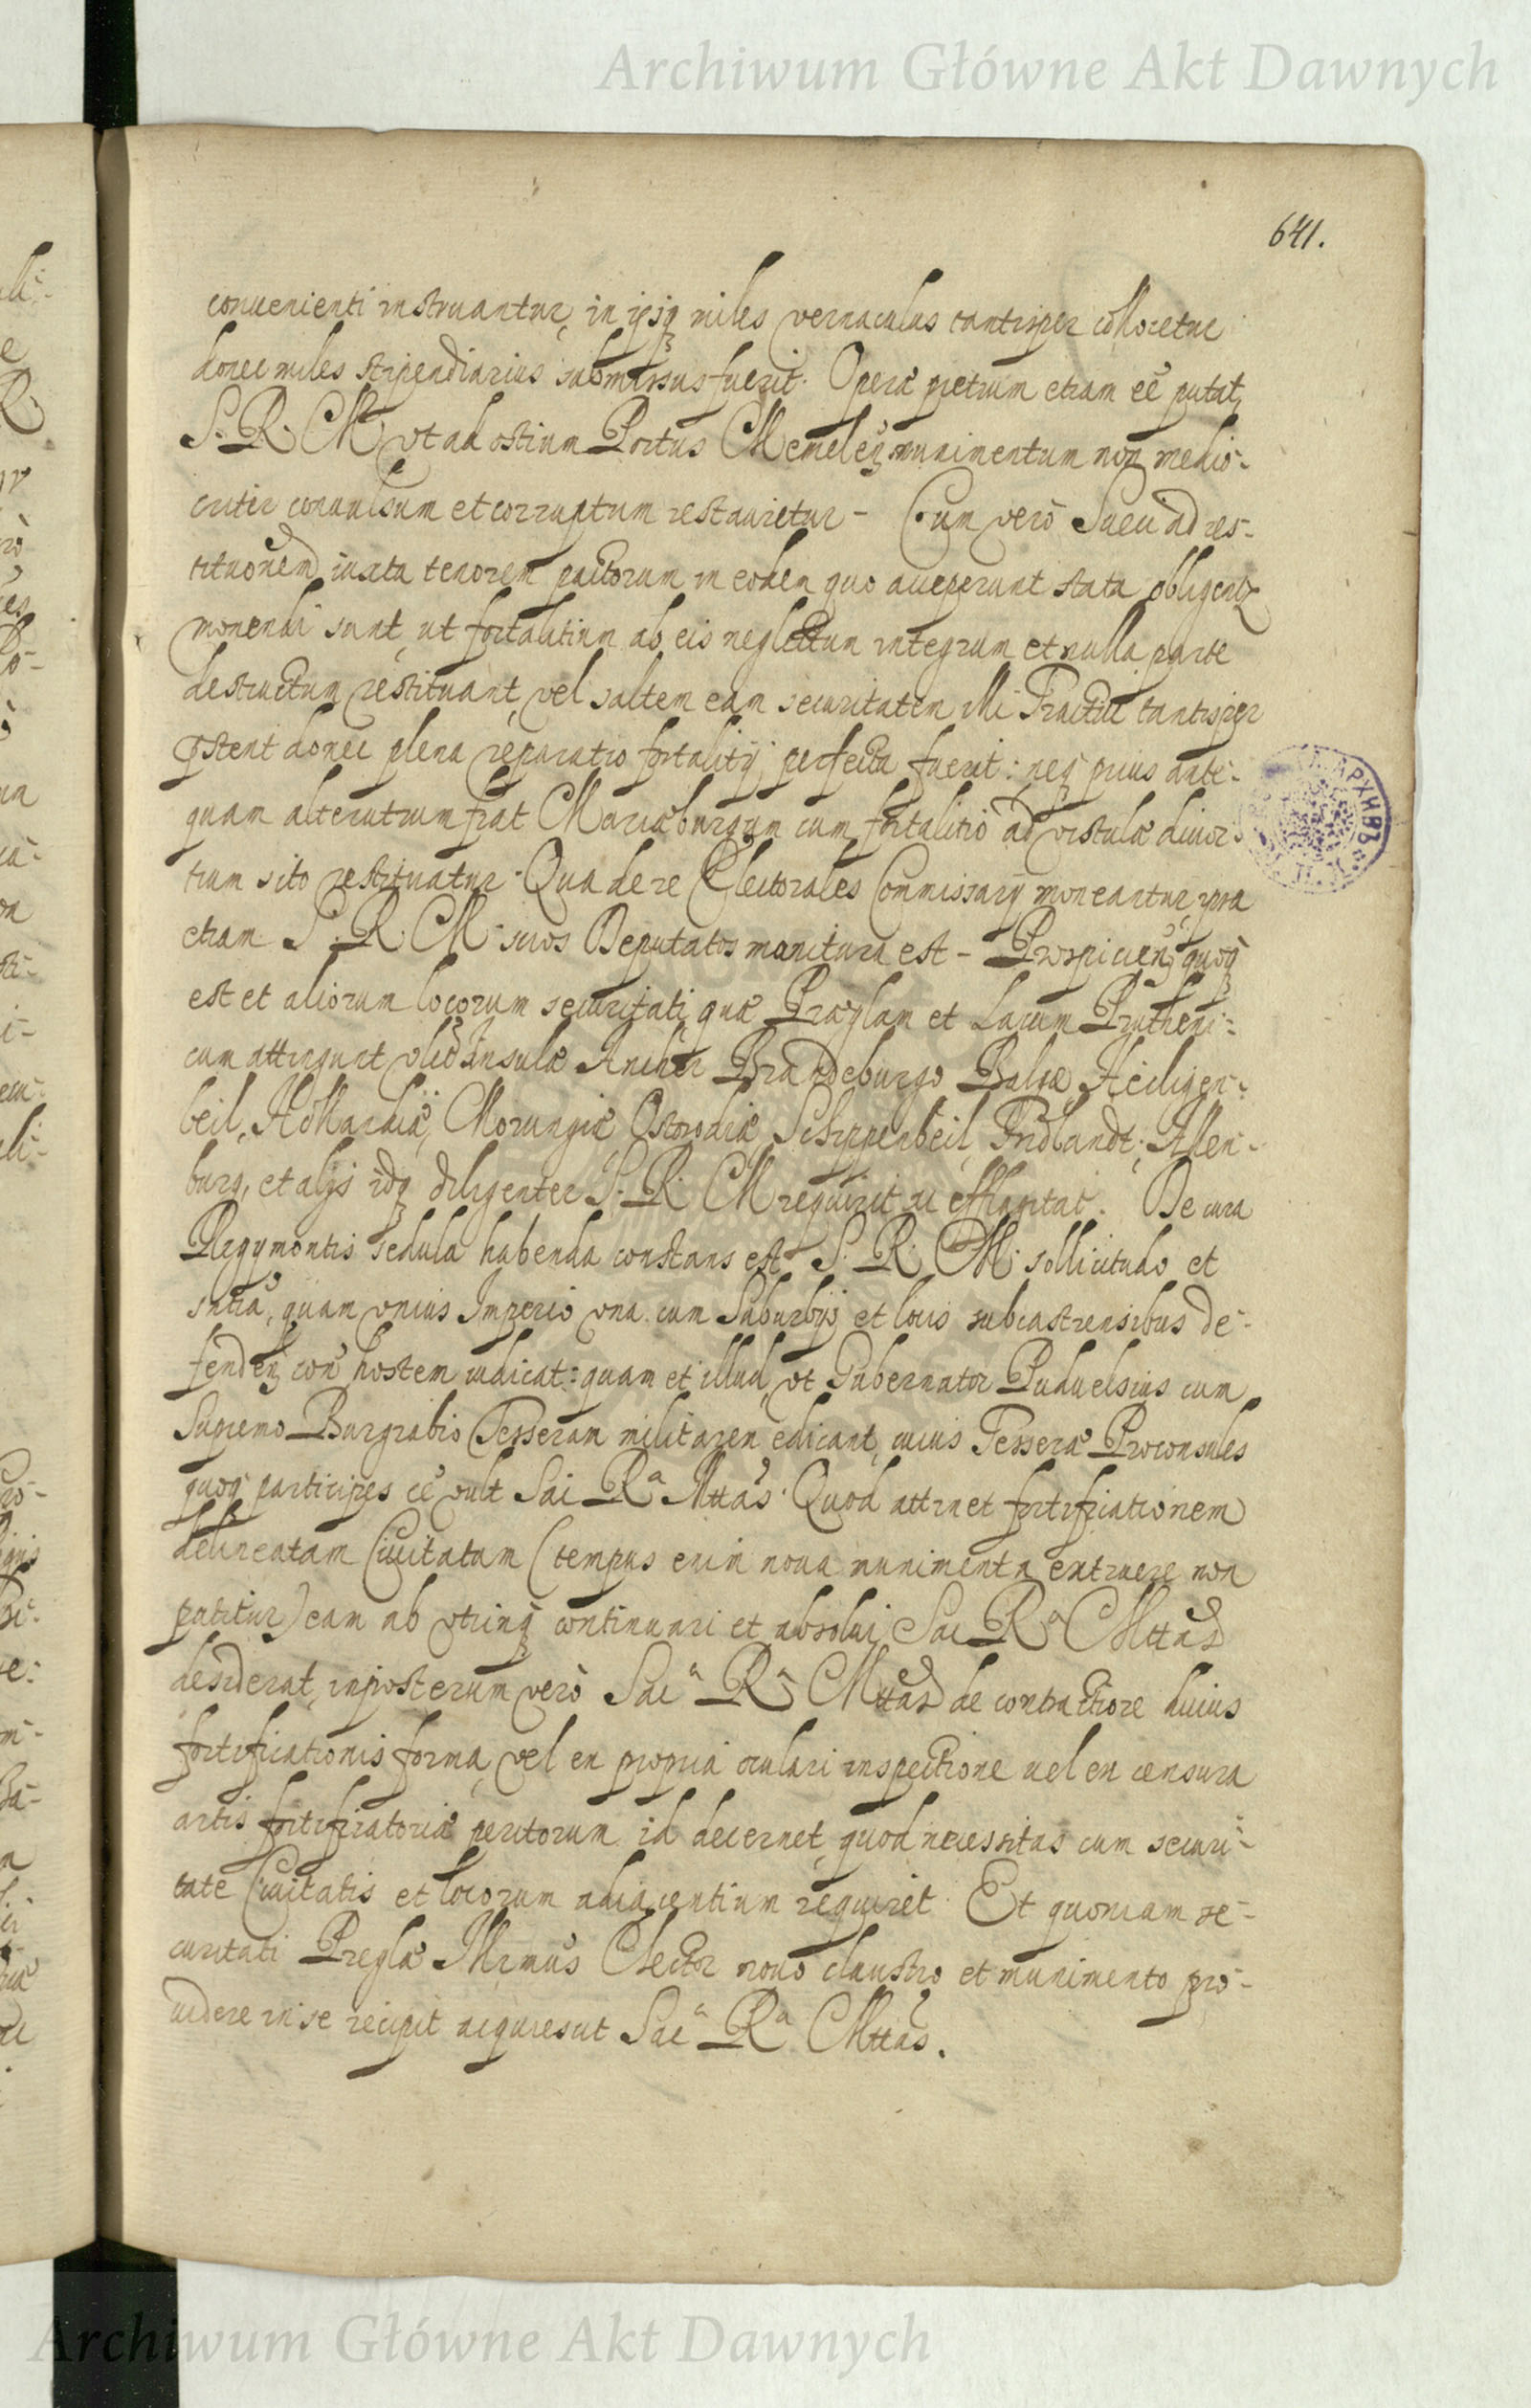 Archiwum Główne Akt Dawnych
641.
conuenienti instruantur, in ipsisq miles vernaculus tantisper collocetur
donec miles stipendiarius submissus fuerit. Operæ pretium etiam eê putat
S. R. M. vt ad ostium Portus Memelen munimentum non medio-
criter conuulsum et corruptum restauretur - Cum verò Sueci ad res-
titutionem iuxta tenorem pactorum in eodem quo acceperunt statu obligentr
monendi sunt, ut fortalitium ab eis neglectum integrum et nulla parte
destructum restituant, vel saltem eam securitatem Illi Tractui tantisper
pstent donec plena reparatio fortalitij perfecta fuerit: neq prius ante-
quam alterutrum fiat Mariæburgum cum fortalitio ad vistulæ diuor-
tium sito restituatur. Qua de re Electorales Commissarij moneantur, ipsa
etiam S. R. M. suos Deputatos monitura est - Prospiciend quoq
est et aliorum locorum securitati quæ Præglam et Lacum Prutheni-
cum attingunt, Brandeburgo Balgæ, Heiligen-
beil, Hollandiæ, Morungiæ Osterodiæ Schippenbeil, Fridlandt, Allen-
burg, et alijs idq diligenter S. R. M requirit ac efflagitat. De cura
Regymontis sedula habenda constans est S. R. M. sollicitudo et
sntia, quam vnius Imperio vna cum Suburbijs et locis subcastrensibus de-
fenden con hostem iudicat: quam et illud, vt Gubernator cum
Supremo Burgrabio Tesseram militarem edicant, cuius Tesseræ Proconsules
quoq participes eê vult Sac Ra Mttas. Quod attinet fortificationem
delineatam Ciuitatum (tempus enim noua munimenta extruere non
patitur) eam ab vtrinq continuari et absolui Sac Ra Mttas
desiderat, inposterum verò Saca Ra Mttas de contractiore huius
fortificationis forma, vel ex propria oculari inspectione uel ex censura
artis fortificatoriæ peritorum id decernet, quod necessitas cum securi-
tate Ciuitatis et locorum adiacentium requiret. Et quoniam se-
curitati Preglæ Illrmus Elector nouo claustro et munimento pro-
uidere in se recipit acquiescit Saca Ra Mttas.
Archiwum Główne Akt Dawnych